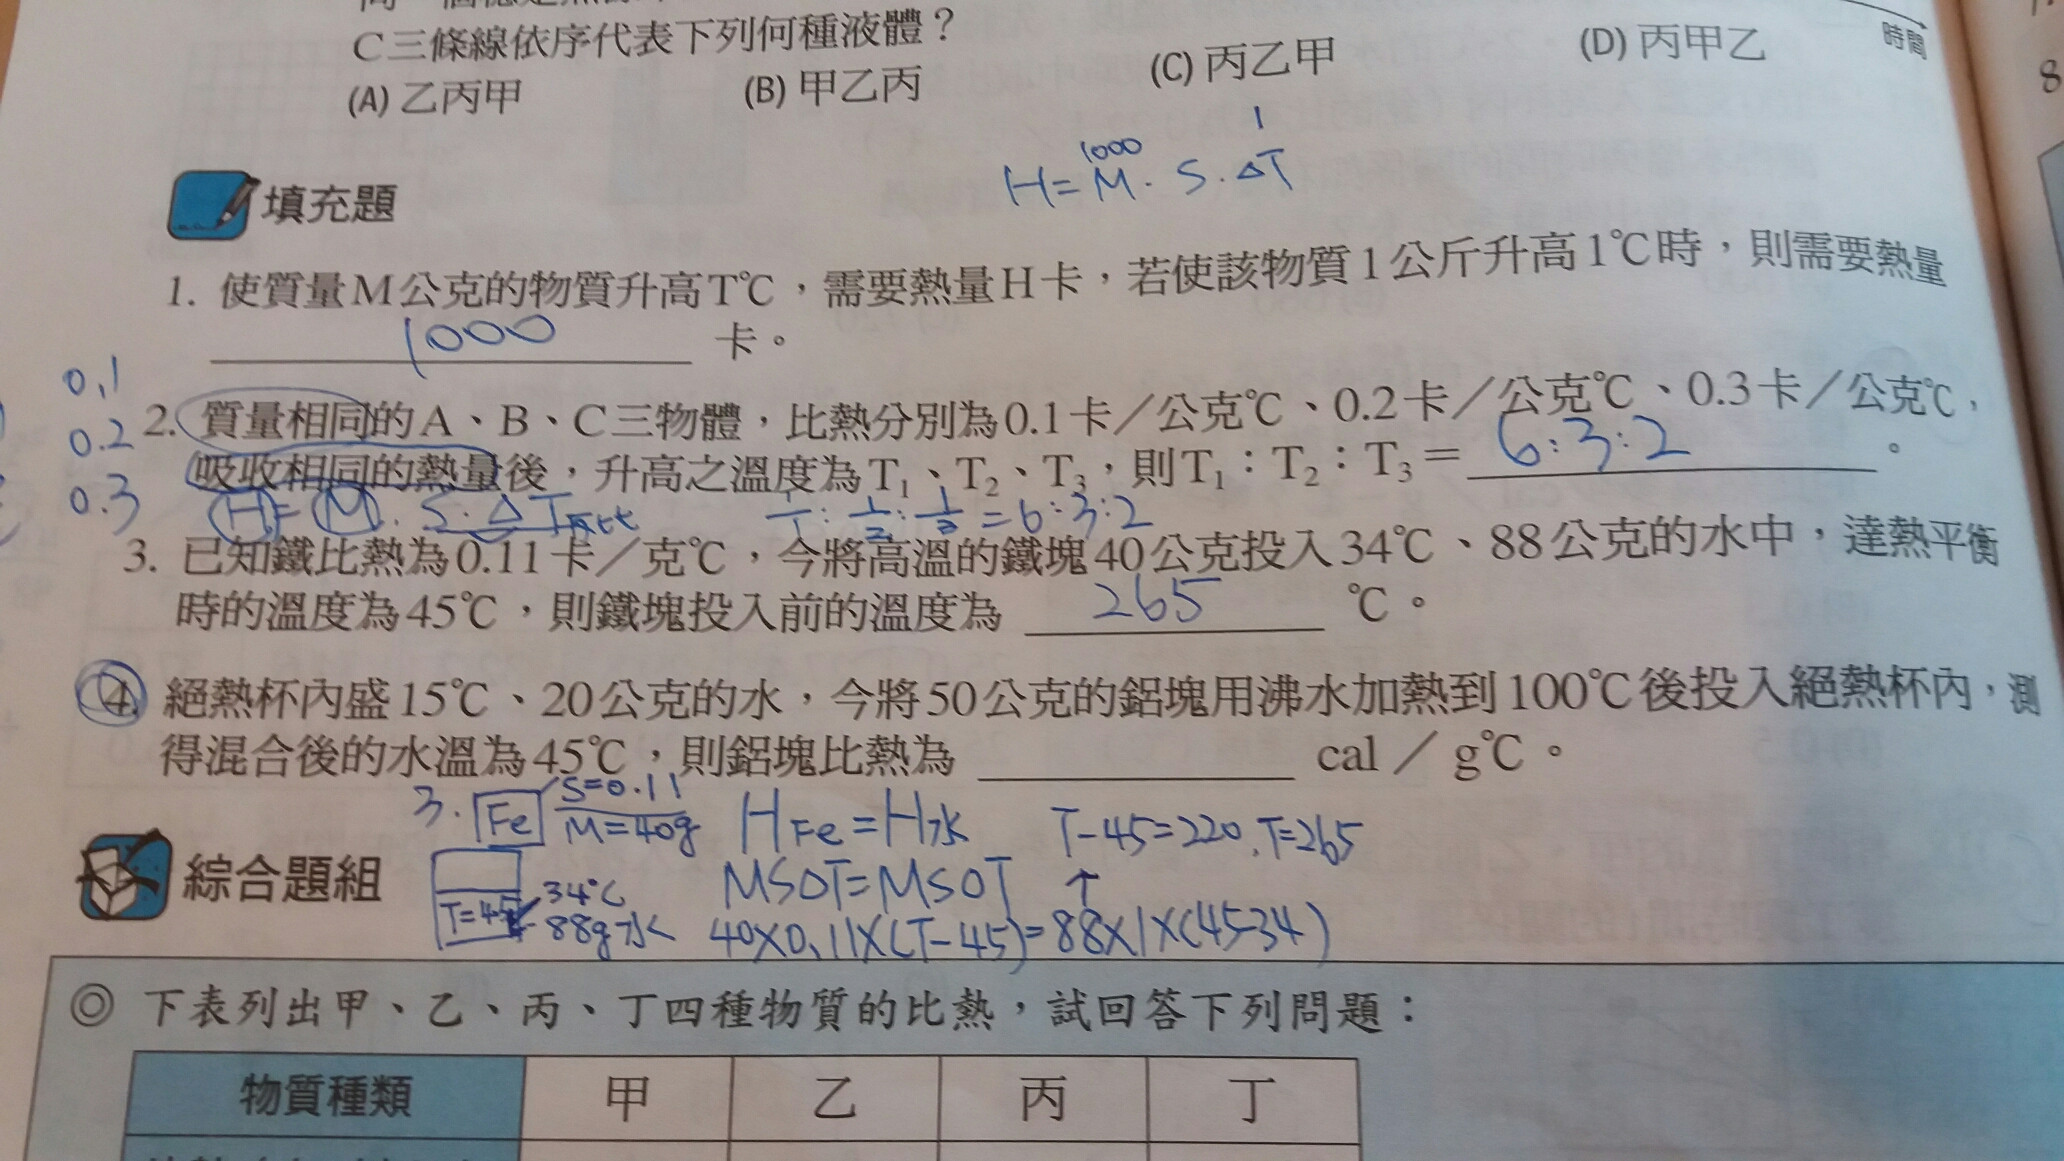 C三條線依序代表下列何種液體？
(A) 乙丙甲 (B) 甲乙丙 (C) 丙乙甲 (D) 丙甲乙
時間
8
1000 1
H=M·S·△T
填充題
1. 使質量M公克的物質升高T℃，需要熱量H卡，若使該物質1公斤升高1℃時，則需要熱量
1000 卡。
0.1
0.2
0.3
2. 質量相同的A、B、C三物體，比熱分別為0.1卡／公克℃、0.2卡／公克℃、0.3卡／公克℃，
吸收相同的熱量後，升高之溫度為T₁、T₂、T₃，則T₁：T₂：T₃＝ 6:3:2 。
H=M·S·△T反比 1/1:1/2:1/3=6:3:2
3. 已知鐵比熱為0.11卡／克℃，今將高溫的鐵塊40公克投入34℃、88公克的水中，達熱平衡
時的溫度為45℃，則鐵塊投入前的溫度為 265 ℃。
4. 絕熱杯內盛15℃、20公克的水，今將50公克的鋁塊用沸水加熱到100℃後投入絕熱杯內，測
得混合後的水溫為45℃，則鋁塊比熱為 cal／g℃。
3. Fe S=0.11 M=40g
T=45 34℃ 88g水
HFe=H水 T-45=220, T=265
MS△T=MS△T ↑
40X0.11X(T-45)=88X1X(45-34)
綜合題組
◎ 下表列出甲、乙、丙、丁四種物質的比熱，試回答下列問題：
物質種類 甲 乙 丙 丁